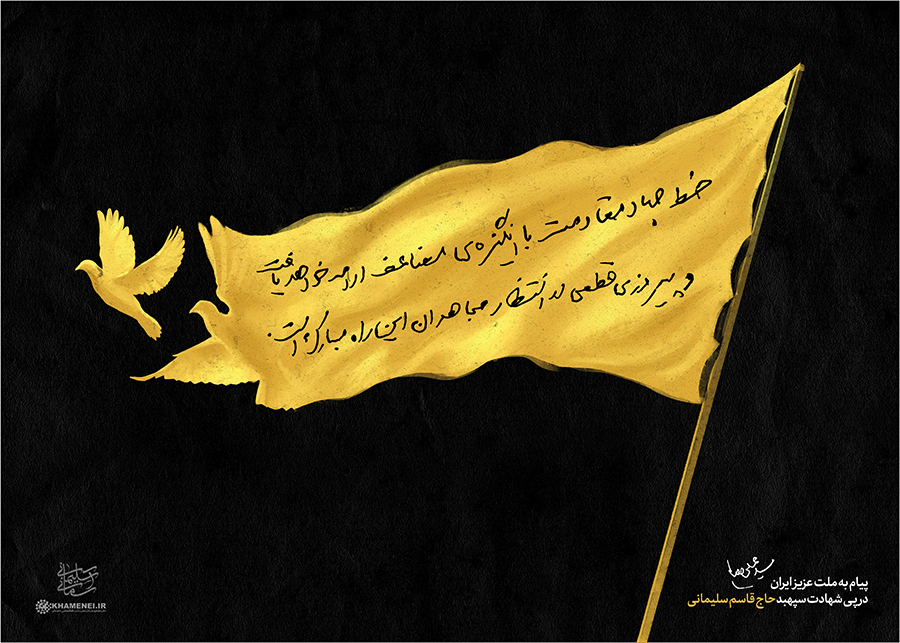 خط جهاد مقاومت با انگیزه‌ی مضاعف ادامه خواهد یافت
و پیروزی قطعی در انتظار مجاهدان این راه مبارک است.
سید علی خامنه‌ای
پیام به ملت عزیز ایران
در پی شهادت سپهبد حاج قاسم سلیمانی
KHAMENEI.IR